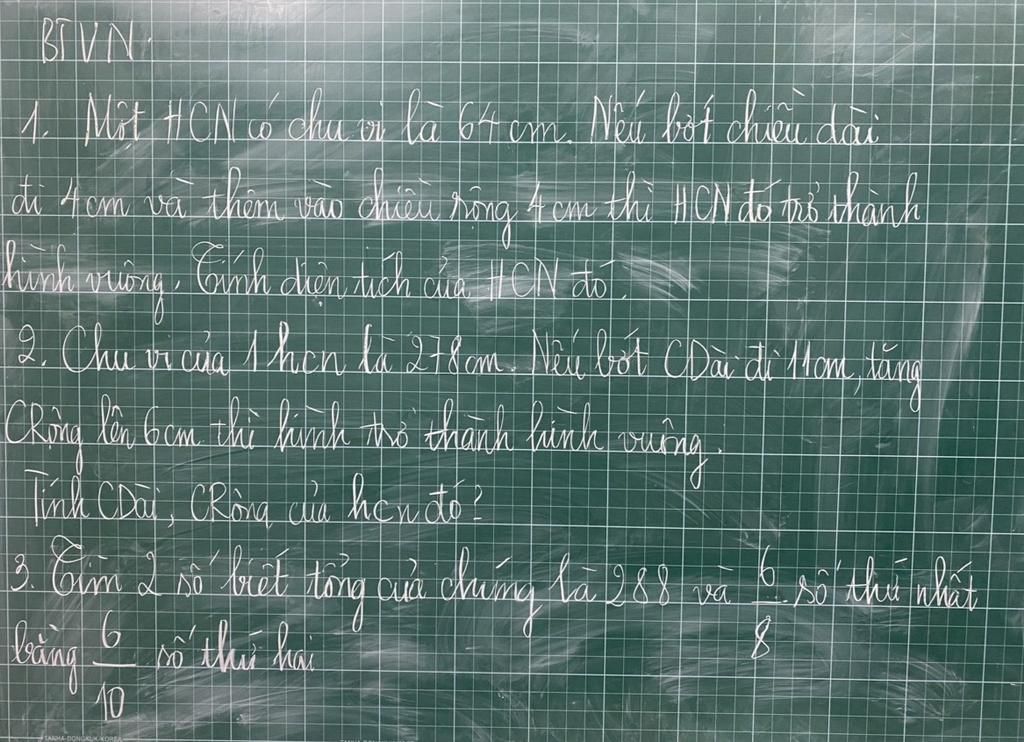 BTVN.
1. Một HCN có chu vi là 64 cm. Nếu bớt chiều dài
đi 4cm và thêm vào chiều rộng 4 cm thì HCN đó trở thành
hình vuông. Tính diện tích của HCN đó.
2. Chu vi của 1 hcn là 278cm. Nếu bớt CDài đi 11cm, tăng
CRộng lên 6cm thì hình trở thành hình vuông.
Tính CDài, CRộng của hcn đó?
3. Tìm 2 số biết tổng của chúng là 288 và 6/8 số thứ nhất
bằng 6/10 số thứ hai
TANHA-DONGKUK-KOREA